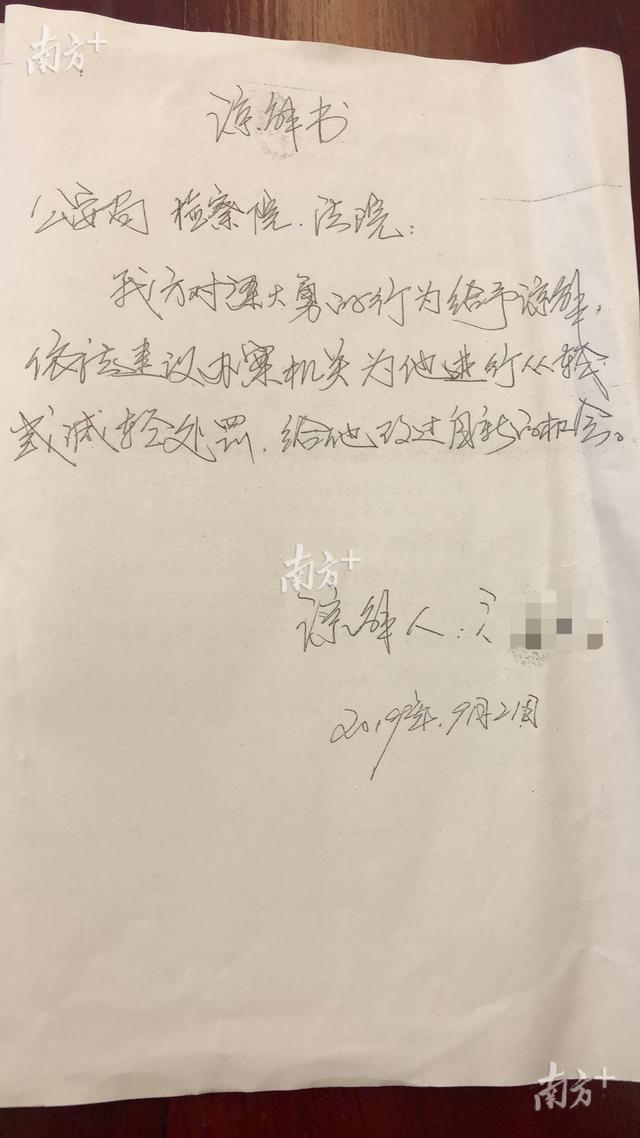 南方+
谅解书
公安局 检察院、法院:
我方对梁大勇的行为给予谅解,
依法建议办案机关为他进行从轻
或减轻处罚,给他改过自新的机会。
南方+
谅解人:
2019年.9月21日
南方+